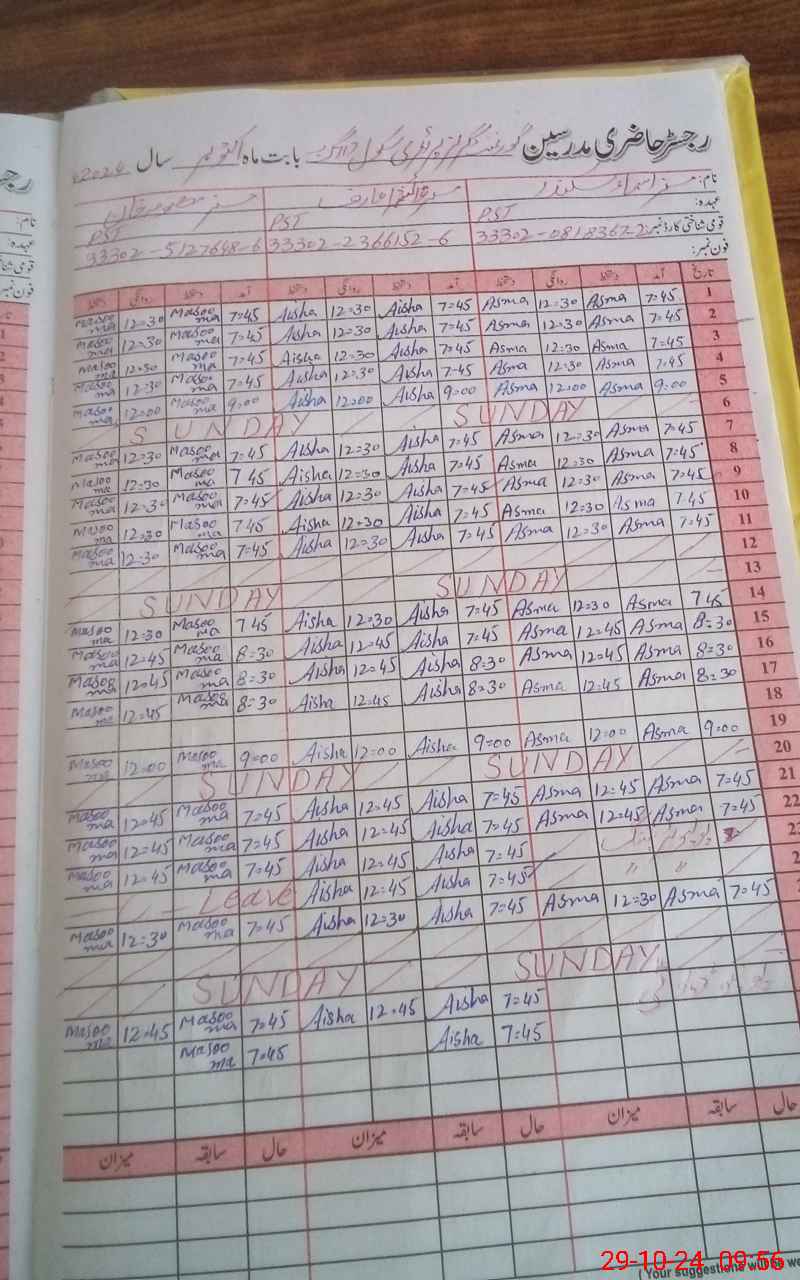 رجسٹر حاضری مدرسین گورنمنٹ گرلز پرائمری سکول بابت ماہ اکتوبر سال 2024
نام:
عہدہ: PST PST PST
قومی شناختی کارڈ نمبر: 33302-0818367-2 33302-2366152-6 33302-5127648-6
فون نمبر:
تاریخ آمد دستخط روانگی دستخط آمد دستخط روانگی دستخط آمد دستخط روانگی دستخط
1 7=45 Asma 12=30 Asma 7=45 Aisha 12=30 Aisha 7=45 Masooma 12=30 Masooma
2 7=45 Asma 12=30 Asma 7=45 Aisha 12=30 Aisha 7=45 Masooma 12=30 Masooma
3 7=45 Asma 12=30 Asma 7=45 Aisha 12=30 Aisha 7=45 Masooma 12=30 Masooma
4 7=45 Asma 12=30 Asma 7=45 Aisha 12=30 Aisha 7=45 Masooma 12=30 Masooma
5 9=00 Asma 12=00 Asma 9=00 Aisha 12=00 Aisha 9=00 Masooma 12=00 Masooma
6 SUNDAY SUNDAY
7 7=45 Asma 12=30 Asma 7=45 Aisha 12=30 Aisha 7=45 Masooma 12=30 Masooma
8 7=45 Asma 12=30 Asma 7=45 Aisha 12=30 Aisha 7 45 Masooma 12=30 Masooma
9 7=45 Asma 12=30 Asma 7=45 Aisha 12=30 Aisha 7=45 Masooma 12=30 Masooma
10 7 45 Asma 12=30 Asma 7=45 Aisha 12=30 Aisha 7 45 Masooma 12=30 Masooma
11 7=45 Asma 12=30 Asma 7=45 Aisha 12=30 Aisha 7=45 Masooma 12=30 Masooma
12
13 SUNDAY SUNDAY
14 7 45 Asma 12=30 Asma 7=45 Aisha 12=30 Aisha 7 45 Masooma 12=30 Masooma
15 8=30 Asma 12=45 Asma 7=45 Aisha 12=45 Aisha 8=30 Masooma 12=45 Masooma
16 8=30 Asma 12=45 Asma 8=30 Aisha 12=45 Aisha 8=30 Masooma 12=45 Masooma
17 8=30 Asma 12=45 Asma 8=30 Aisha 12=45 Aisha 8=30 Masooma 12=45 Masooma
18
19 9=00 Asma 12=00 Asma 9=00 Aisha 12=00 Aisha 9=00 Masooma 12=00 Masooma
20 SUNDAY SUNDAY
21 7=45 Asma 12=45 Asma 7=45 Aisha 12=45 Aisha 7=45 Masooma 12=45 Masooma
22 7=45 Asma 12=45 Asma 7=45 Aisha 12=45 Aisha 7=45 Masooma 12=45 Masooma
7=45 Aisha 12=45 Aisha 7=45 Masooma 12=45 Masooma
〃 〃 7=45 Aisha 12=45 Aisha Leave
7=45 Asma 12=30 Asma 7=45 Aisha 12=30 Aisha 7=45 Masooma 12=30 Masooma
SUNDAY SUNDAY
7=45 Aisha 12=45 Aisha 7=45 Masooma 12=45 Masooma
7=45 Aisha 7=45 Masooma
حال سابقہ میزان حال سابقہ میزان حال سابقہ میزان
29-10-24 09:56
( Your suggestions will be we